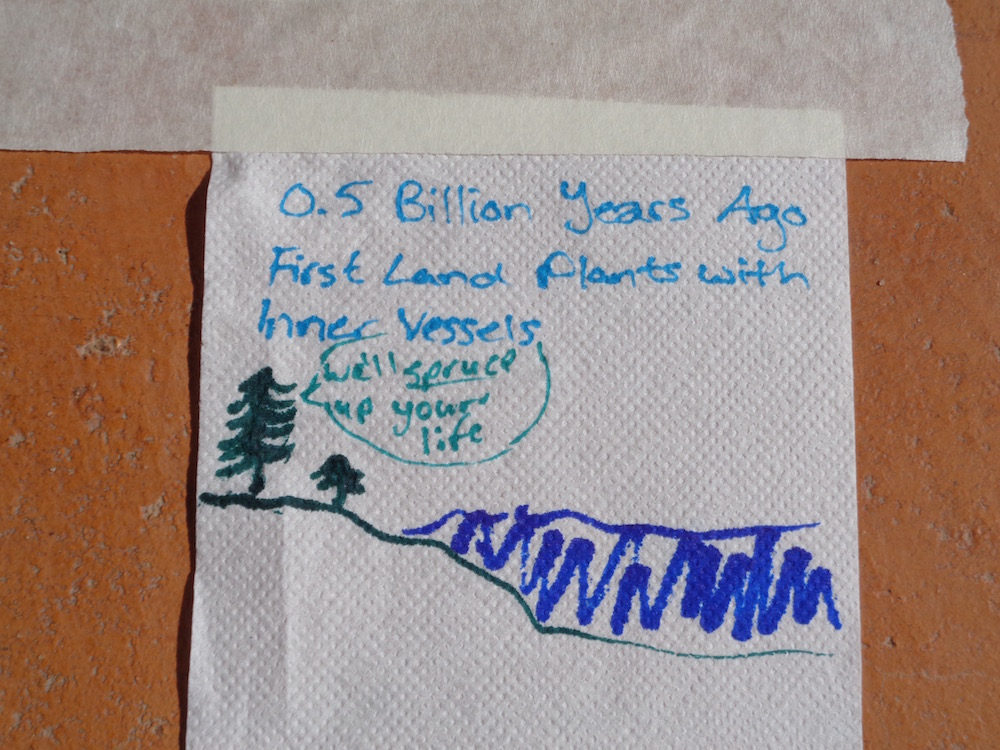 0.5 Billion Years Ago
First Land Plants with
Inner Vessels
we'll spruce
up your
life